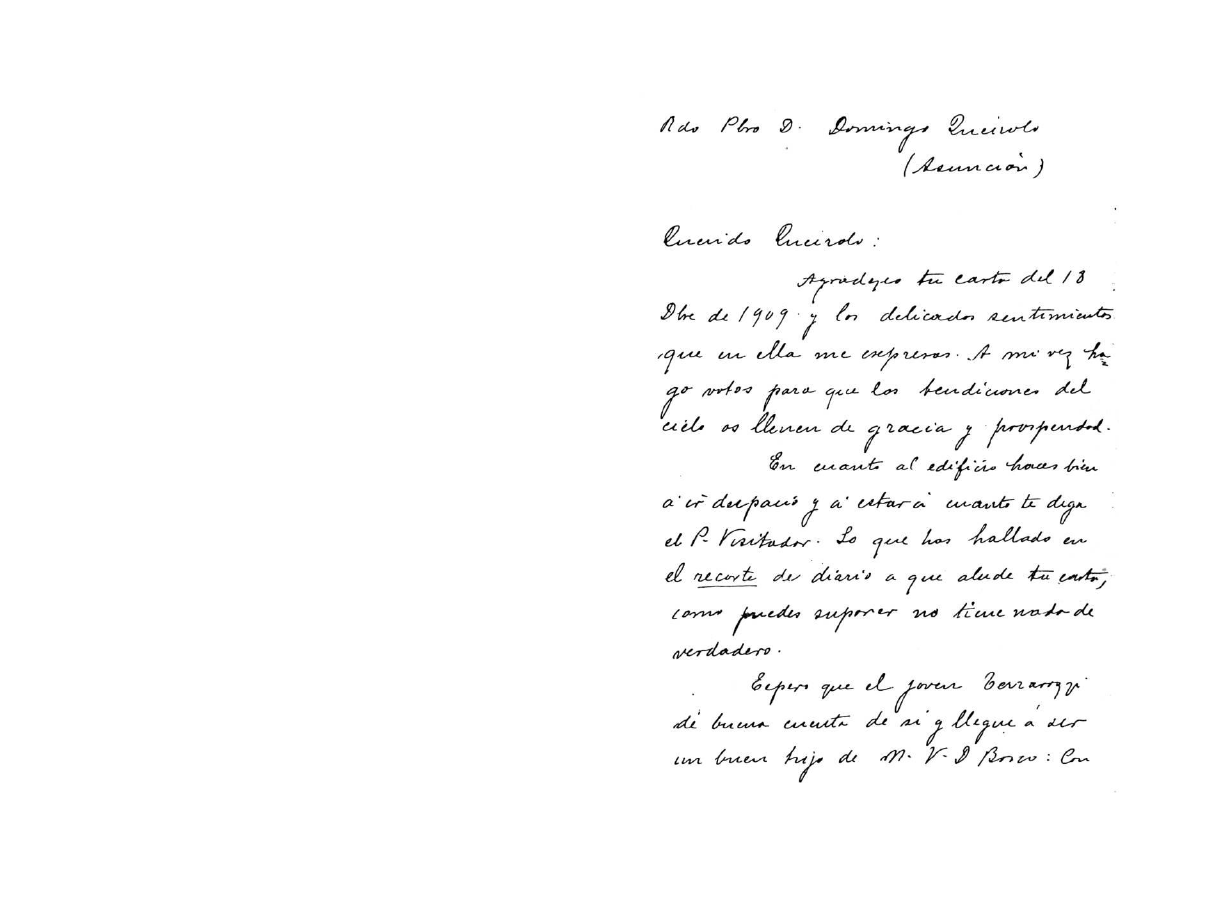 Rdo Pbro D. Domingo Queirolo
(Asunción)
Querido Queirolo:
Agradezco tu carta del 18
Dbre de 1909 y los delicados sentimientos
que en ella me expresas. A mi vez ha
go votos para que las bendiciones del
cielo os llenen de gracia y prosperidad.
En cuanto al edificio haces bien
á ir despacio y á estar á cuanto te diga
el P. Visitador. Lo que has hallado en
el recorte de diario a que alude tu carta,
como puedes suponer no tiene nada de
verdadero.
Espero que el joven
dé buena cuenta de sí y llegue á ser
un buen hijo de M. V. D Bosco: Con